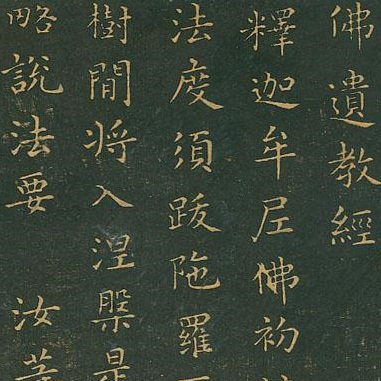 佛遺教經
釋迦牟尼佛初
法度須跋陀羅
樹間将入涅槃是
略說法要 汝等